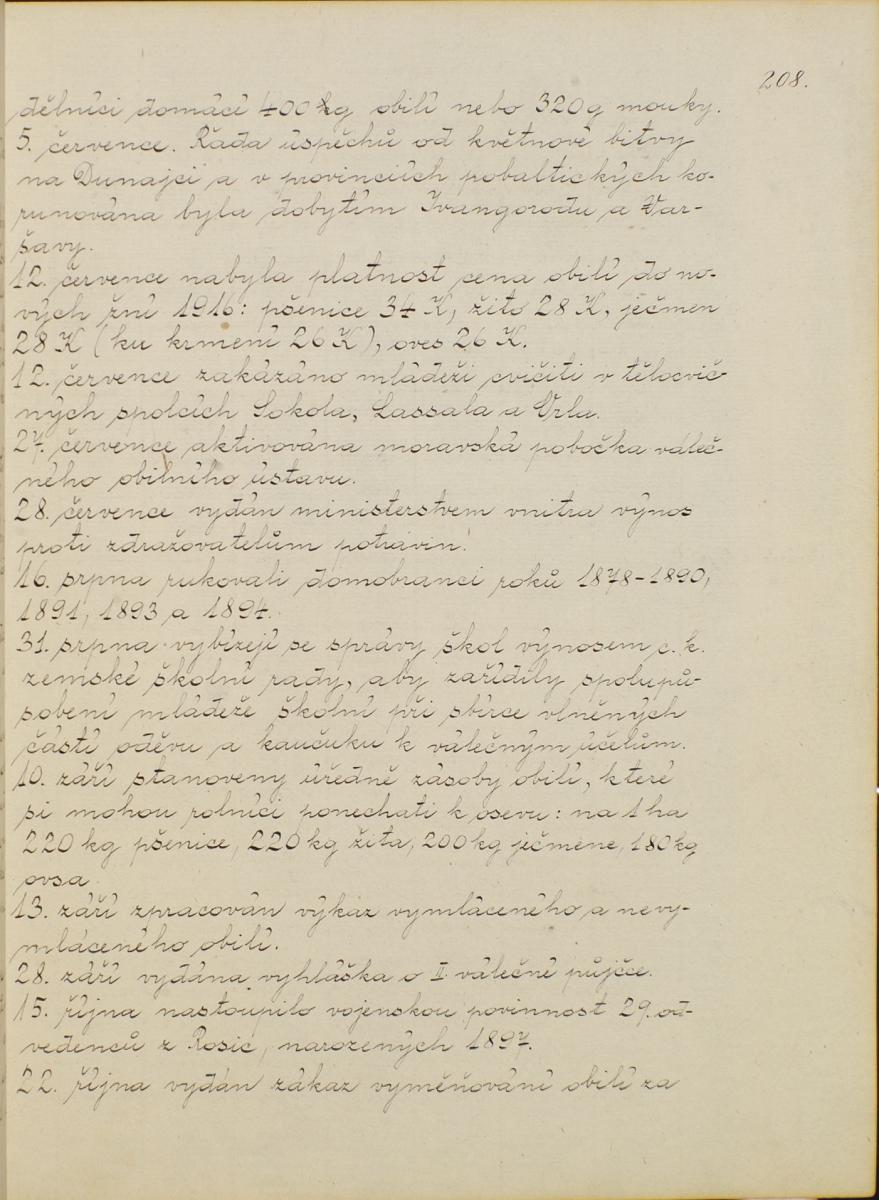 208.
dělníci domácí 400 kg obilí nebo 320 g mouky.
5. července. Řada úspěchů od květnové bitvy
na Dunajci a v provinciích pobaltických ko-
runována byla dobytím Ivangorodu a Var-
šavy.
12. července nabyla platnost cena obilí do no-
vých žní 1916: pšenice 34 K, žito 28 K, ječmen
28 K (ku krmení 26 K), oves 26 K.
12. července zakázáno mládeži cvičiti v tělocvič-
ných spolcích Sokola, Lassala a Orla.
27. července aktivována moravská pobočka váleč-
ného obilního ústavu.
28. července vydán ministerstvem vnitra výnos
proti zdražovatelům potravin.
16. srpna rukovali domobranci roků 1878-1890,
1891, 1893 a 1894.
31. srpna vybízejí se správy škol výnosem c. k.
zemské školní rady, aby zařídily spolupů-
sobení mládeže školní při sbírce vlněných
částí oděvu a kaučuku k válečným účelům.
10. září stanoveny úředně zásoby obilí, které
si mohou rolníci ponechati k osevu: na 1 ha
220 kg pšenice, 220 kg žita, 200 kg ječmene, 180 kg
ovsa.
13. září zpracován výkaz vymláceného a nevy-
mláceného obilí.
28. září vydána vyhláška o II. válečné půjčce.
15. října nastoupilo vojenskou povinnost 29 od-
vedenců z Rosic, narozených 1897.
22. října vydán zákaz vyměňování obilí za